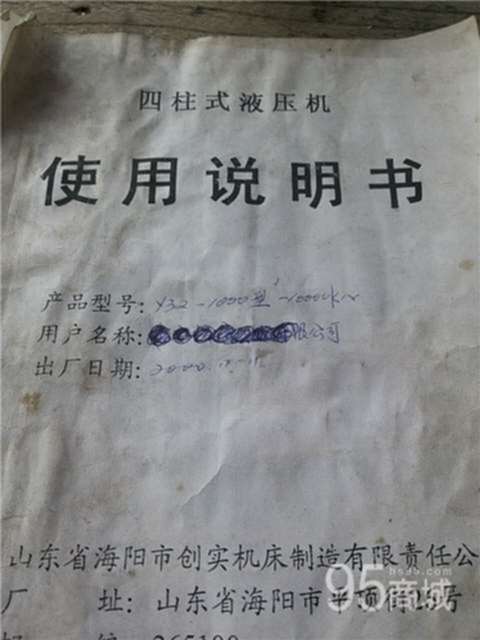 四柱式液压机
使用说明书
产品型号: Y32-1000型-10000KN
用户名称: 限公司
出厂日期: 2000.
山东省海阳市创实机床制造有限责任公
厂 址: 山东省海阳市半项街
265100
95商城